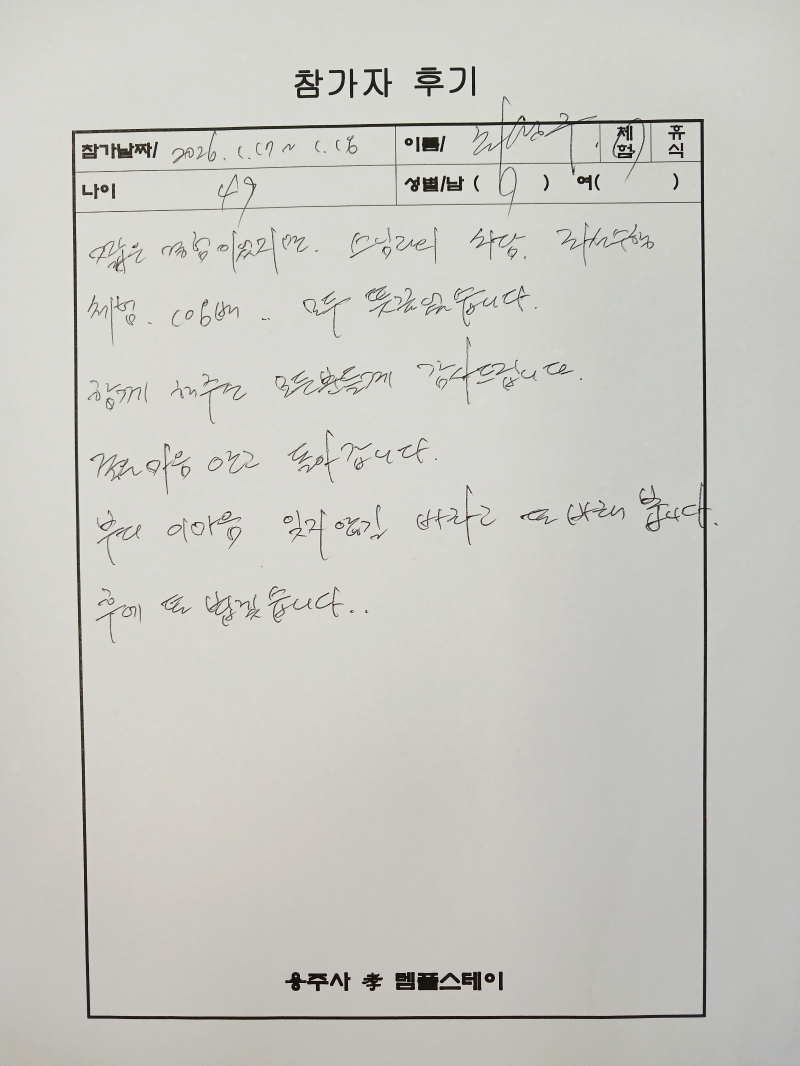 참가자 후기
참가날짜/ 2026. 1. 17 ~ 1. 18 이름/ 체험 휴식
나이 49 성별/남 ( ) 여( )
짧은 경험이었지만. 스님과의 차담.
체험. 108배 .. 모두 뜻깊었습니다.
함께 해주신 모든분들께 감사드립니다.
마음 안고 돌아갑니다.
부디 이마음 잊지않길 바라고 또 바래 봅니다.
후에 또 뵙겠습니다..
용주사 孝 템플스테이